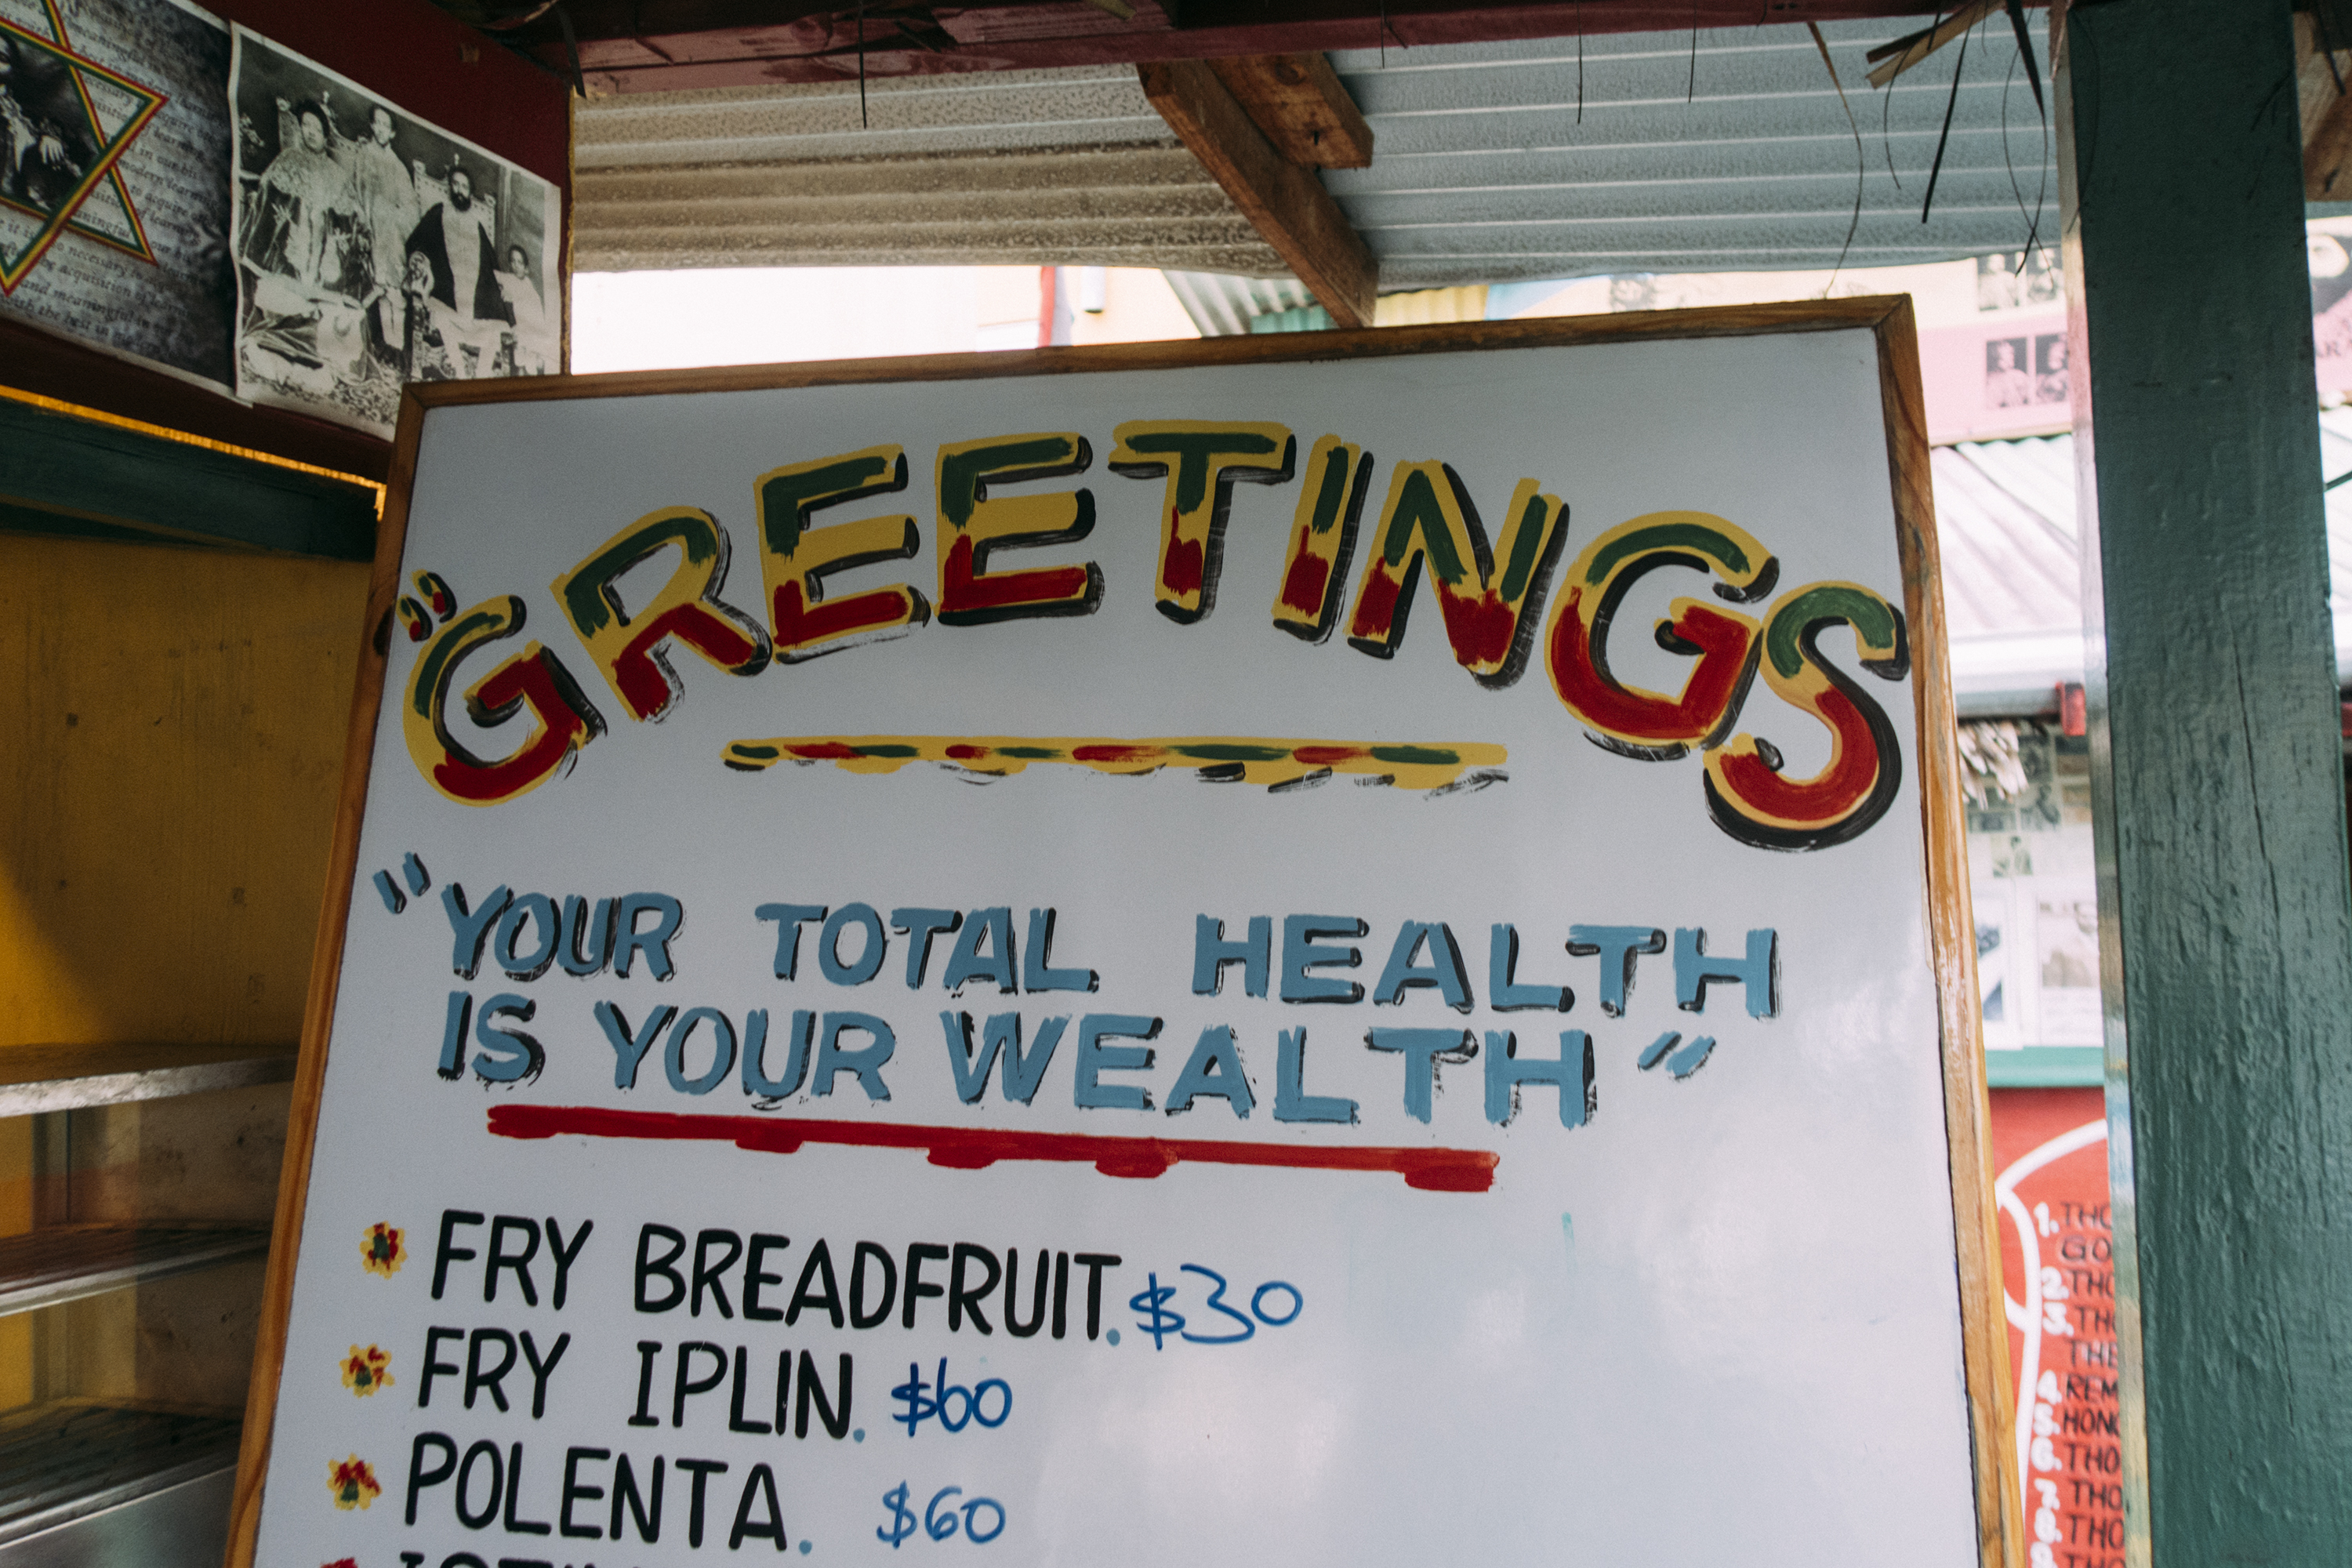 "GREETINGS
"YOUR TOTAL HEALTH
IS YOUR WEALTH"
FRY BREADFRUIT. $30
FRY IPLIN. $60
POLENTA. $60
1. THO
GO
2. THO
3. THO
THE
4. REM
5. HONO
6. THO
7. THO
8. THO
9. THO